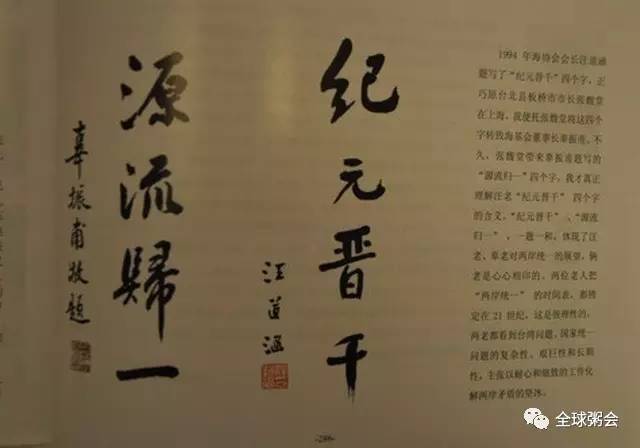 纪元晋千
汪道涵
源流歸一
辜振甫敬題
1994 年海协会会长汪道涵
题写了“纪元晋千”四个字，正
巧原台北县板桥市市长张魏堂
在上海，我便托张魏堂将这四个
字转致海基会董事长辜振甫。不
久，张魏堂带来辜振甫题写的
“源流归一”四个字，我才真正
理解汪老“纪元晋千”四个字
的含义，“纪元晋千”、“源流
归一”，一题一和，体现了汪
老、辜老对两岸统一的展望，俩
老是心心相印的。两位老人把
“两岸统一”的时间表，都锁
定在 21 世纪，这是很理性的。
两老都看到台湾问题、国家统一
问题的复杂性、艰巨性和长期
性，主张以耐心和细致的工作化
解两岸矛盾的坚冰。
全球粥会